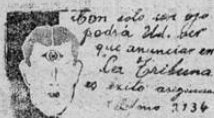 Con solo ser ojo
podrá Ud. ver
que anunciar en
La Tribuna
es éxito asegurado
Teléfono 2136